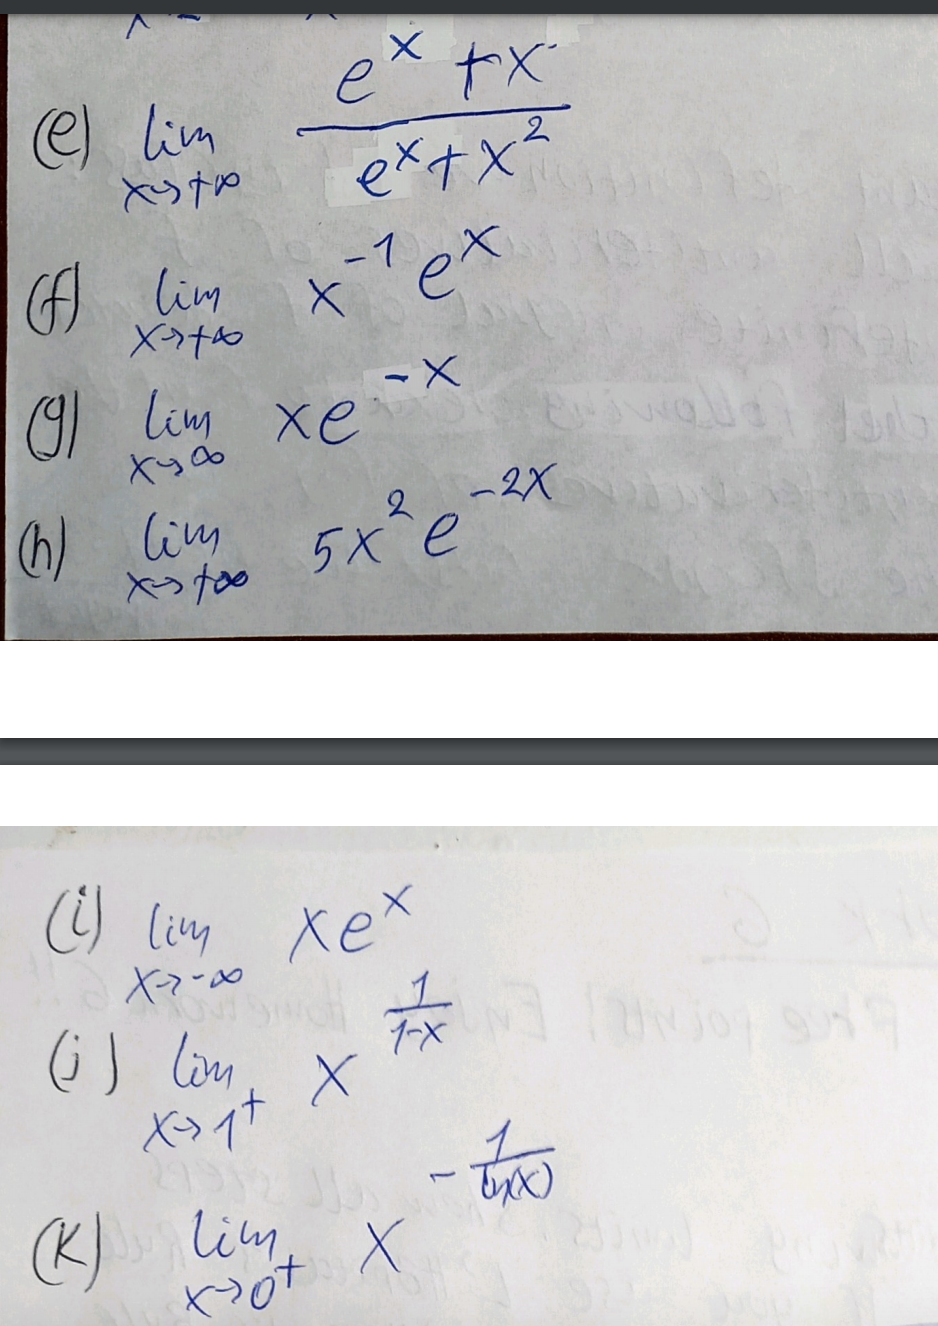 (e) lim x→+∞ (e^x + x)/(e^x + x^2)
(f) lim x→+∞ x^-1 e^x
(g) lim x→∞ xe^-x
(h) lim x→+∞ 5x^2 e^-2x
(i) lim x→-∞ xe^x
(j) lim x→1^+ x^(1/(1-x))
(k) lim x→0^+ x^(-1/ln(x))